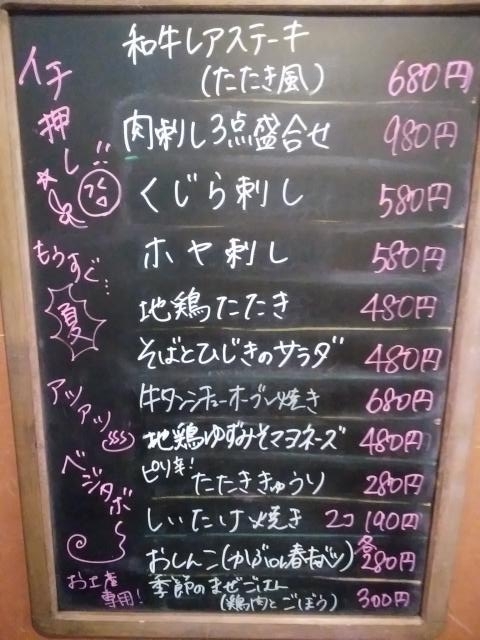 イチ押し!!
和牛レアステーキ
(たたき風) 680円
肉刺し3点盛合せ 980円
くじら刺し 580円
ホヤ刺し 580円
もうすぐ…
夏
地鶏たたき 480円
そばとひじきのサラダ 480円
アツアツ
牛タンシチューオーブン焼き 680円
地鶏ゆずみそマヨネーズ 480円
ベジタボー
ピリ辛!
たたききゅうり 280円
しいたけ焼き 2コ 190円
おしんこ(かぶor春キャベツ) 各280円
お土産
専用!
季節のまぜごはん
(鶏肉とごぼう) 300円